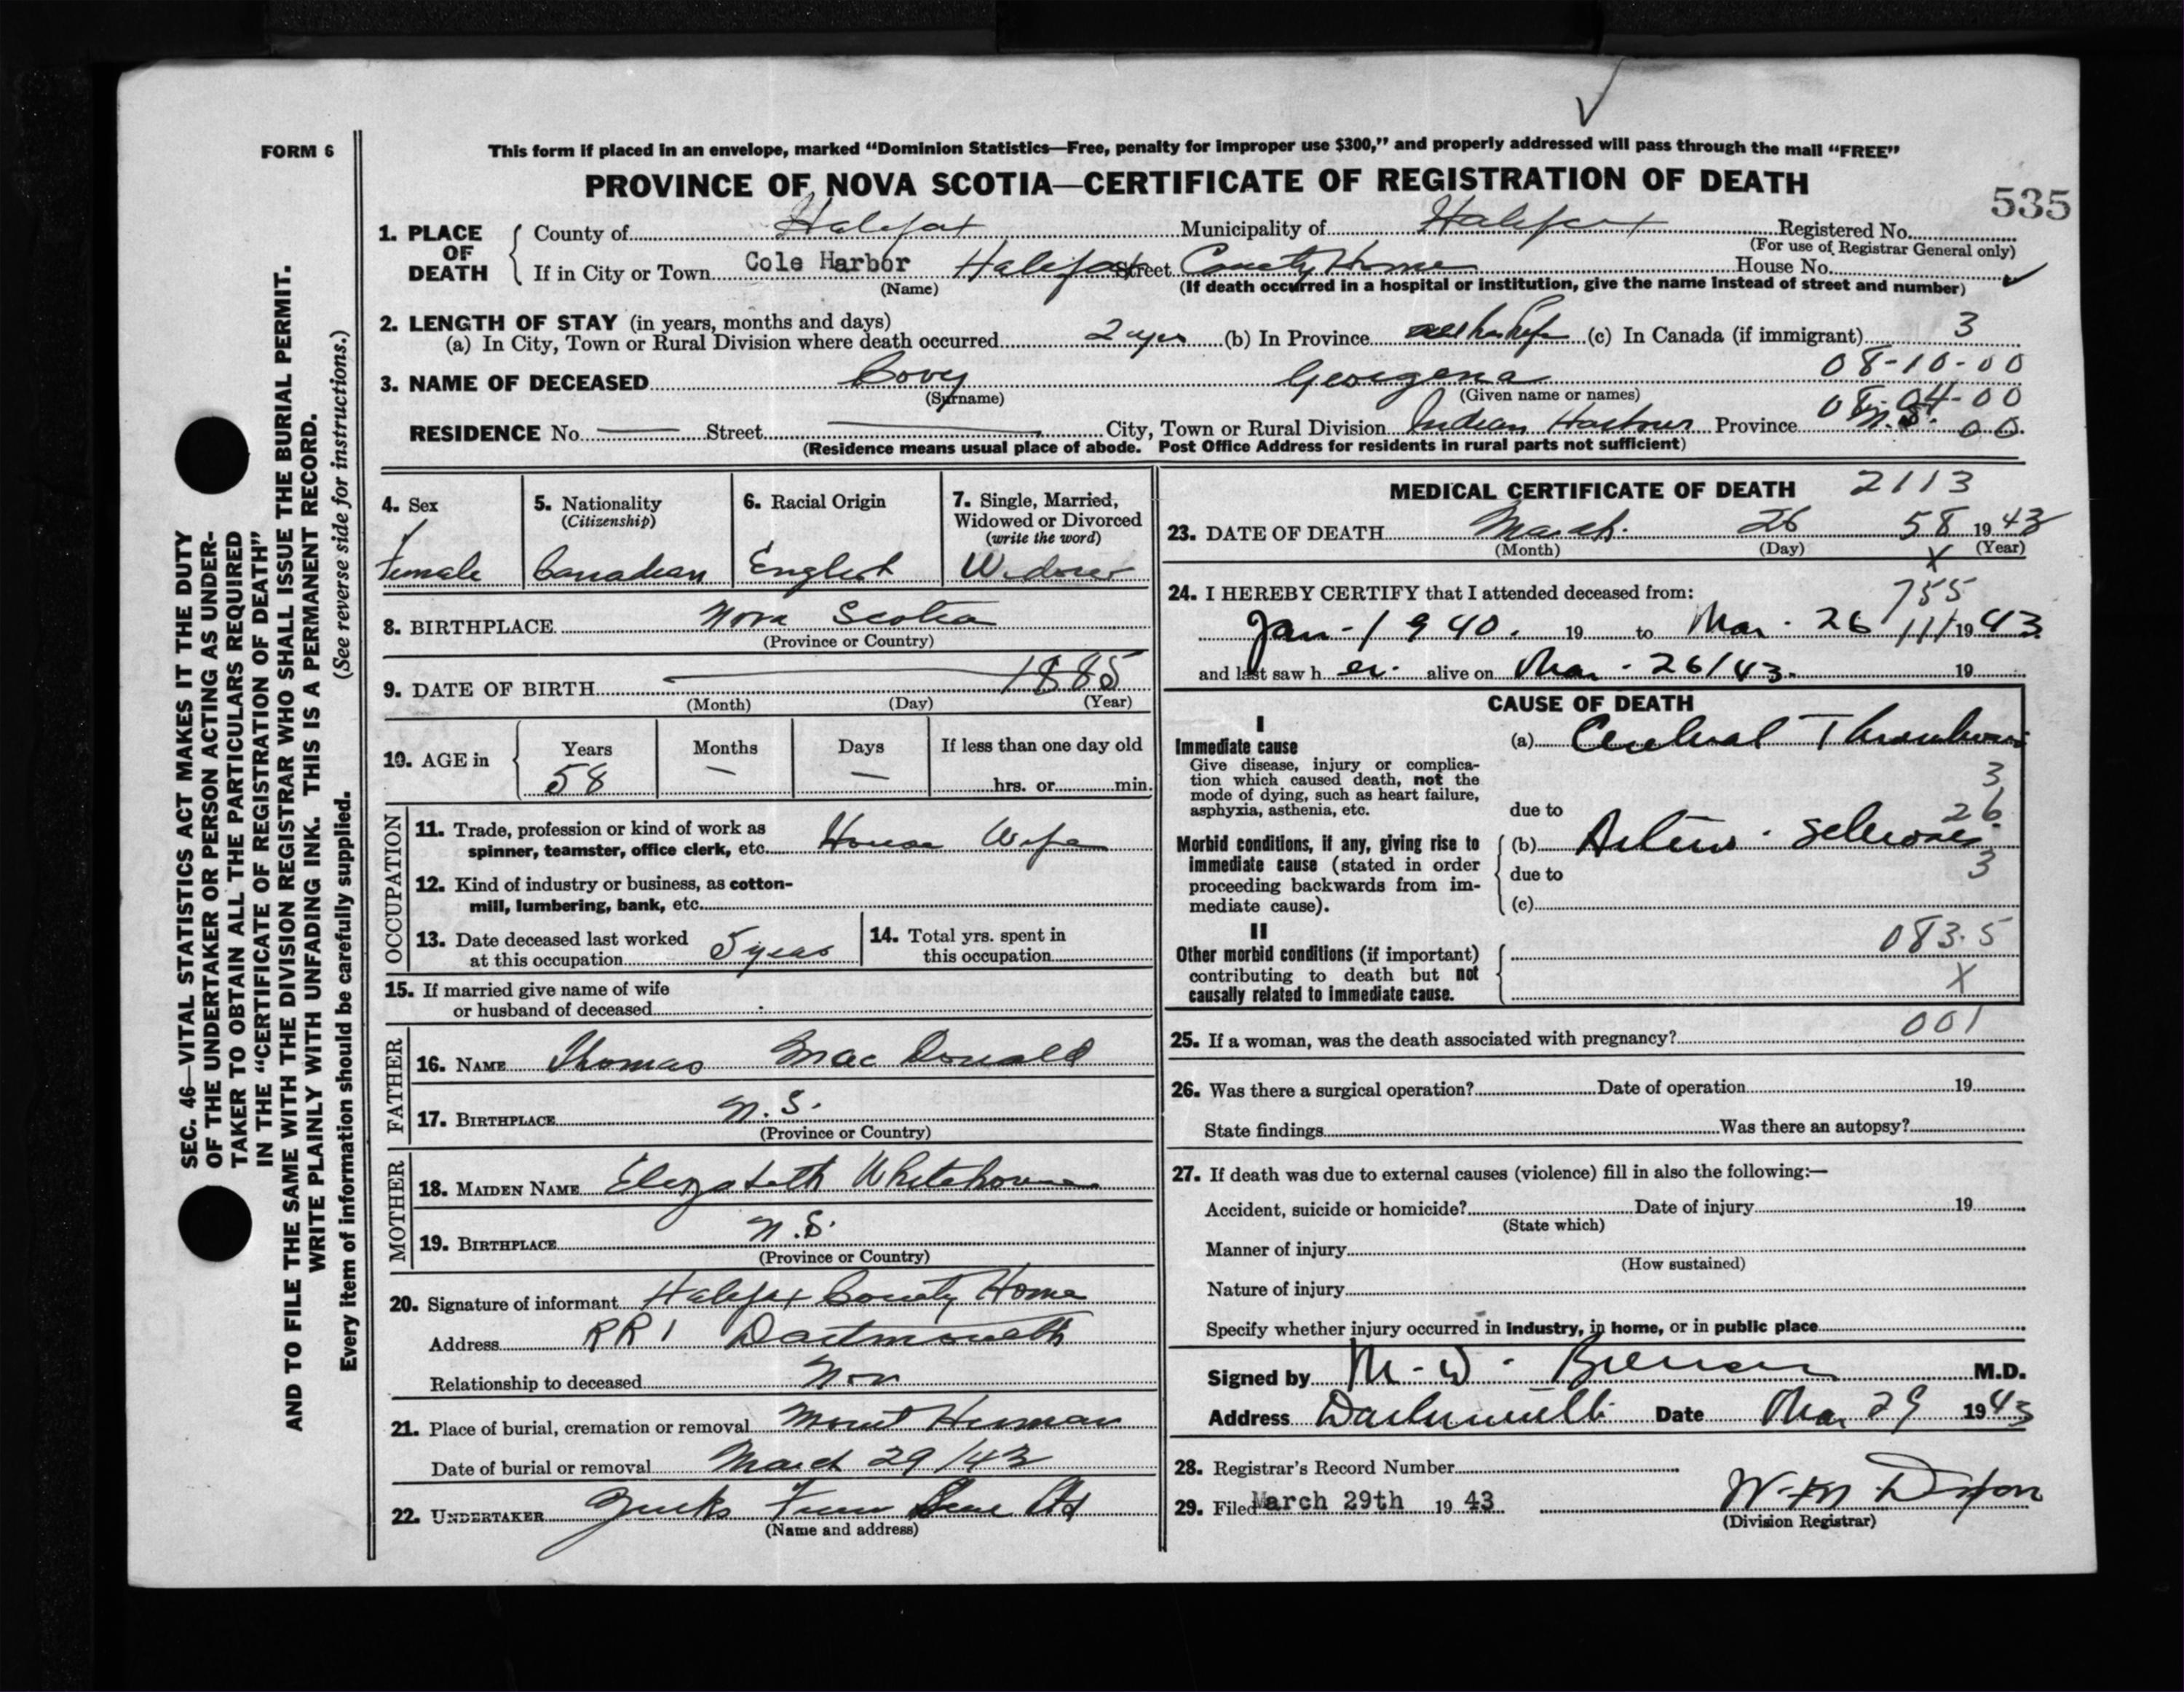 FORM 6
This form if placed in an envelope, marked “Dominion Statistics—Free, penalty for improper use $300,” and properly addressed will pass through the mail “FREE”
PROVINCE OF NOVA SCOTIA—CERTIFICATE OF REGISTRATION OF DEATH
535
1. PLACE OF DEATH
County of Halifax Municipality of Halifax Registered No.
(For use of Registrar General only)
If in City or Town Cole Harbor Halifax Street County Home House No.
(Name) (If death occurred in a hospital or institution, give the name instead of street and number)
2. LENGTH OF STAY (in years, months and days)
(a) In City, Town or Rural Division where death occurred 2 yrs (b) In Province all her life (c) In Canada (if immigrant) 3
08-10-00
3. NAME OF DECEASED Covey Georgena
(Surname) (Given name or names)
08-04-00
RESIDENCE No. — Street — City, Town or Rural Division Indian Harbour Province N.S. 00
(Residence means usual place of abode. Post Office Address for residents in rural parts not sufficient)
4. Sex
Female
5. Nationality
(Citizenship)
Canadian
6. Racial Origin
English
7. Single, Married,
Widowed or Divorced
(write the word)
Widow
8. BIRTHPLACE Nova Scotia
(Province or Country)
9. DATE OF BIRTH 1885
(Month) (Day) (Year)
10. AGE in
Years Months Days If less than one day old
58 — — hrs. or min.
OCCUPATION
11. Trade, profession or kind of work as
spinner, teamster, office clerk, etc. House Wife
12. Kind of industry or business, as cotton-
mill, lumbering, bank, etc.
13. Date deceased last worked
at this occupation 5 years
14. Total yrs. spent in
this occupation
15. If married give name of wife
or husband of deceased
FATHER
16. NAME Thomas MacDonald
17. BIRTHPLACE N.S.
(Province or Country)
MOTHER
18. MAIDEN NAME Elizabeth Whitehouse
19. BIRTHPLACE N.S.
(Province or Country)
20. Signature of informant Halifax County Home
Address RR 1 Dartmouth
Relationship to deceased Non
21. Place of burial, cremation or removal Mount Herman
Date of burial or removal March 29/43
22. UNDERTAKER Ltd
(Name and address)
MEDICAL CERTIFICATE OF DEATH 2113
23. DATE OF DEATH March 26 58 1943
(Month) (Day) X (Year)
24. I HEREBY CERTIFY that I attended deceased from:
755
Jan - 1940. 19 to Mar. 26 111 1943
and last saw h er alive on Mar. 26/43. 19
CAUSE OF DEATH
I
Immediate cause
Give disease, injury or complica-
tion which caused death, not the
mode of dying, such as heart failure,
asphyxia, asthenia, etc.
(a) Cerebral Thrombosis
3
due to
26
Morbid conditions, if any, giving rise to
immediate cause (stated in order
proceeding backwards from im-
mediate cause).
(b) Arterio-sclerosis
due to 3
(c)
II
Other morbid conditions (if important)
contributing to death but not
causally related to immediate cause.
083.5
X
001
25. If a woman, was the death associated with pregnancy?
26. Was there a surgical operation? Date of operation 19
State findings Was there an autopsy?
27. If death was due to external causes (violence) fill in also the following:—
Accident, suicide or homicide? Date of injury 19
(State which)
Manner of injury
(How sustained)
Nature of injury
Specify whether injury occurred in industry, in home, or in public place
Signed by M. D. M.D.
Address Dartmouth Date Mar 29 1943
28. Registrar's Record Number
29. Filed March 29th 1943 Dixon
(Division Registrar)
SEC. 46—VITAL STATISTICS ACT MAKES IT THE DUTY
OF THE UNDERTAKER OR PERSON ACTING AS UNDER-
TAKER TO OBTAIN ALL THE PARTICULARS REQUIRED
IN THE “CERTIFICATE OF REGISTRATION OF DEATH”
AND TO FILE THE SAME WITH THE DIVISION REGISTRAR WHO SHALL ISSUE THE BURIAL PERMIT.
WRITE PLAINLY WITH UNFADING INK. THIS IS A PERMANENT RECORD.
Every item of information should be carefully supplied. (See reverse side for instructions.)